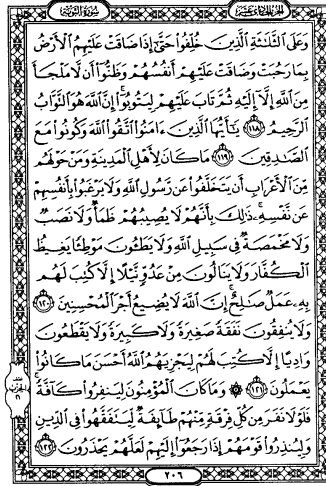 الجزء الحادى عشر
سورة التوبة
وَعَلَى ٱلثَّلَٰثَةِ ٱلَّذِينَ خُلِّفُوا۟ حَتَّىٰٓ إِذَا ضَاقَتْ عَلَيْهِمُ ٱلْأَرْضُ
بِمَا رَحُبَتْ وَضَاقَتْ عَلَيْهِمْ أَنفُسُهُمْ وَظَنُّوٓا۟ أَن لَّا مَلْجَأَ
مِنَ ٱللَّهِ إِلَّآ إِلَيْهِ ثُمَّ تَابَ عَلَيْهِمْ لِيَتُوبُوٓا۟ إِنَّ ٱللَّهَ هُوَ ٱلتَّوَّابُ
ٱلرَّحِيمُ ١١٨ يَٰٓأَيُّهَا ٱلَّذِينَ ءَامَنُوا۟ ٱتَّقُوا۟ ٱللَّهَ وَكُونُوا۟ مَعَ
ٱلصَّٰدِقِينَ ١١٩ مَا كَانَ لِأَهْلِ ٱلْمَدِينَةِ وَمَنْ حَوْلَهُم
مِّنَ ٱلْأَعْرَابِ أَن يَتَخَلَّفُوا۟ عَن رَّسُولِ ٱللَّهِ وَلَا يَرْغَبُوا۟ بِأَنفُسِهِمْ
عَن نَّفْسِهِۦ ذَٰلِكَ بِأَنَّهُمْ لَا يُصِيبُهُمْ ظَمَأٌ وَلَا نَصَبٌ
وَلَا مَخْمَصَةٌ فِى سَبِيلِ ٱللَّهِ وَلَا يَطَـُٔونَ مَوْطِئًا يَغِيظُ
ٱلْكُفَّارَ وَلَا يَنَالُونَ مِنْ عَدُوٍّ نَّيْلًا إِلَّا كُتِبَ لَهُم
بِهِۦ عَمَلٌ صَٰلِحٌ إِنَّ ٱللَّهَ لَا يُضِيعُ أَجْرَ ٱلْمُحْسِنِينَ ١٢٠
وَلَا يُنفِقُونَ نَفَقَةً صَغِيرَةً وَلَا كَبِيرَةً وَلَا يَقْطَعُونَ
وَادِيًا إِلَّا كُتِبَ لَهُمْ لِيَجْزِيَهُمُ ٱللَّهُ أَحْسَنَ مَا كَانُوا۟
يَعْمَلُونَ ١٢١ ۞ وَمَا كَانَ ٱلْمُؤْمِنُونَ لِيَنفِرُوا۟ كَآفَّةً
فَلَوْلَا نَفَرَ مِن كُلِّ فِرْقَةٍ مِّنْهُمْ طَآئِفَةٌ لِّيَتَفَقَّهُوا۟ فِى ٱلدِّينِ
وَلِيُنذِرُوا۟ قَوْمَهُمْ إِذَا رَجَعُوٓا۟ إِلَيْهِمْ لَعَلَّهُمْ يَحْذَرُونَ ١٢٢
٢٠٦